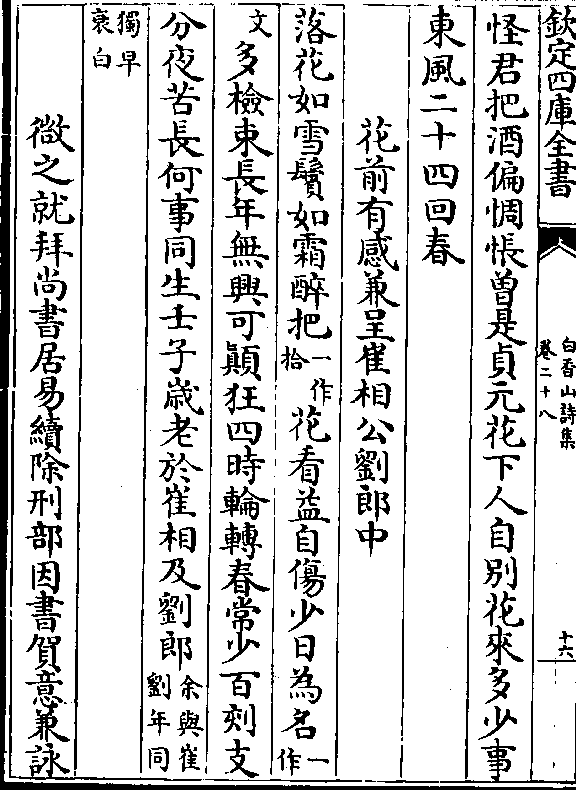 欽定四庫全書
白香山詩集
卷二十八
十六
怪君把酒偏惆悵曾是貞元花下人自別花來多少事
東風二十四回春
花前有感兼呈崔相公劉郎中
落花如雪鬢如霜醉把一作拾花看益自傷少日為名一作
文多檢束長年無興可顛狂四時輪轉春常少百刻支
分夜苦長何事同生壬子歳老於崔相及劉郎余與崔劉年同
獨早衰白
微之就拜尚書居易續除刑部因書賀意兼詠